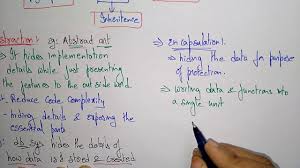 Inheritence
straction :- eg: Abstract art
→ It hides implementation
details while Just presenting
the features to the out side world.
Reduce Code Complexity
→ hiding details & exposing the
essential parts
db sys hides the details of
how data is stored &
→ Encapsulation :-
→ hiding the data for purpose
of protection.
→ wrriting data & functions into
a single unit